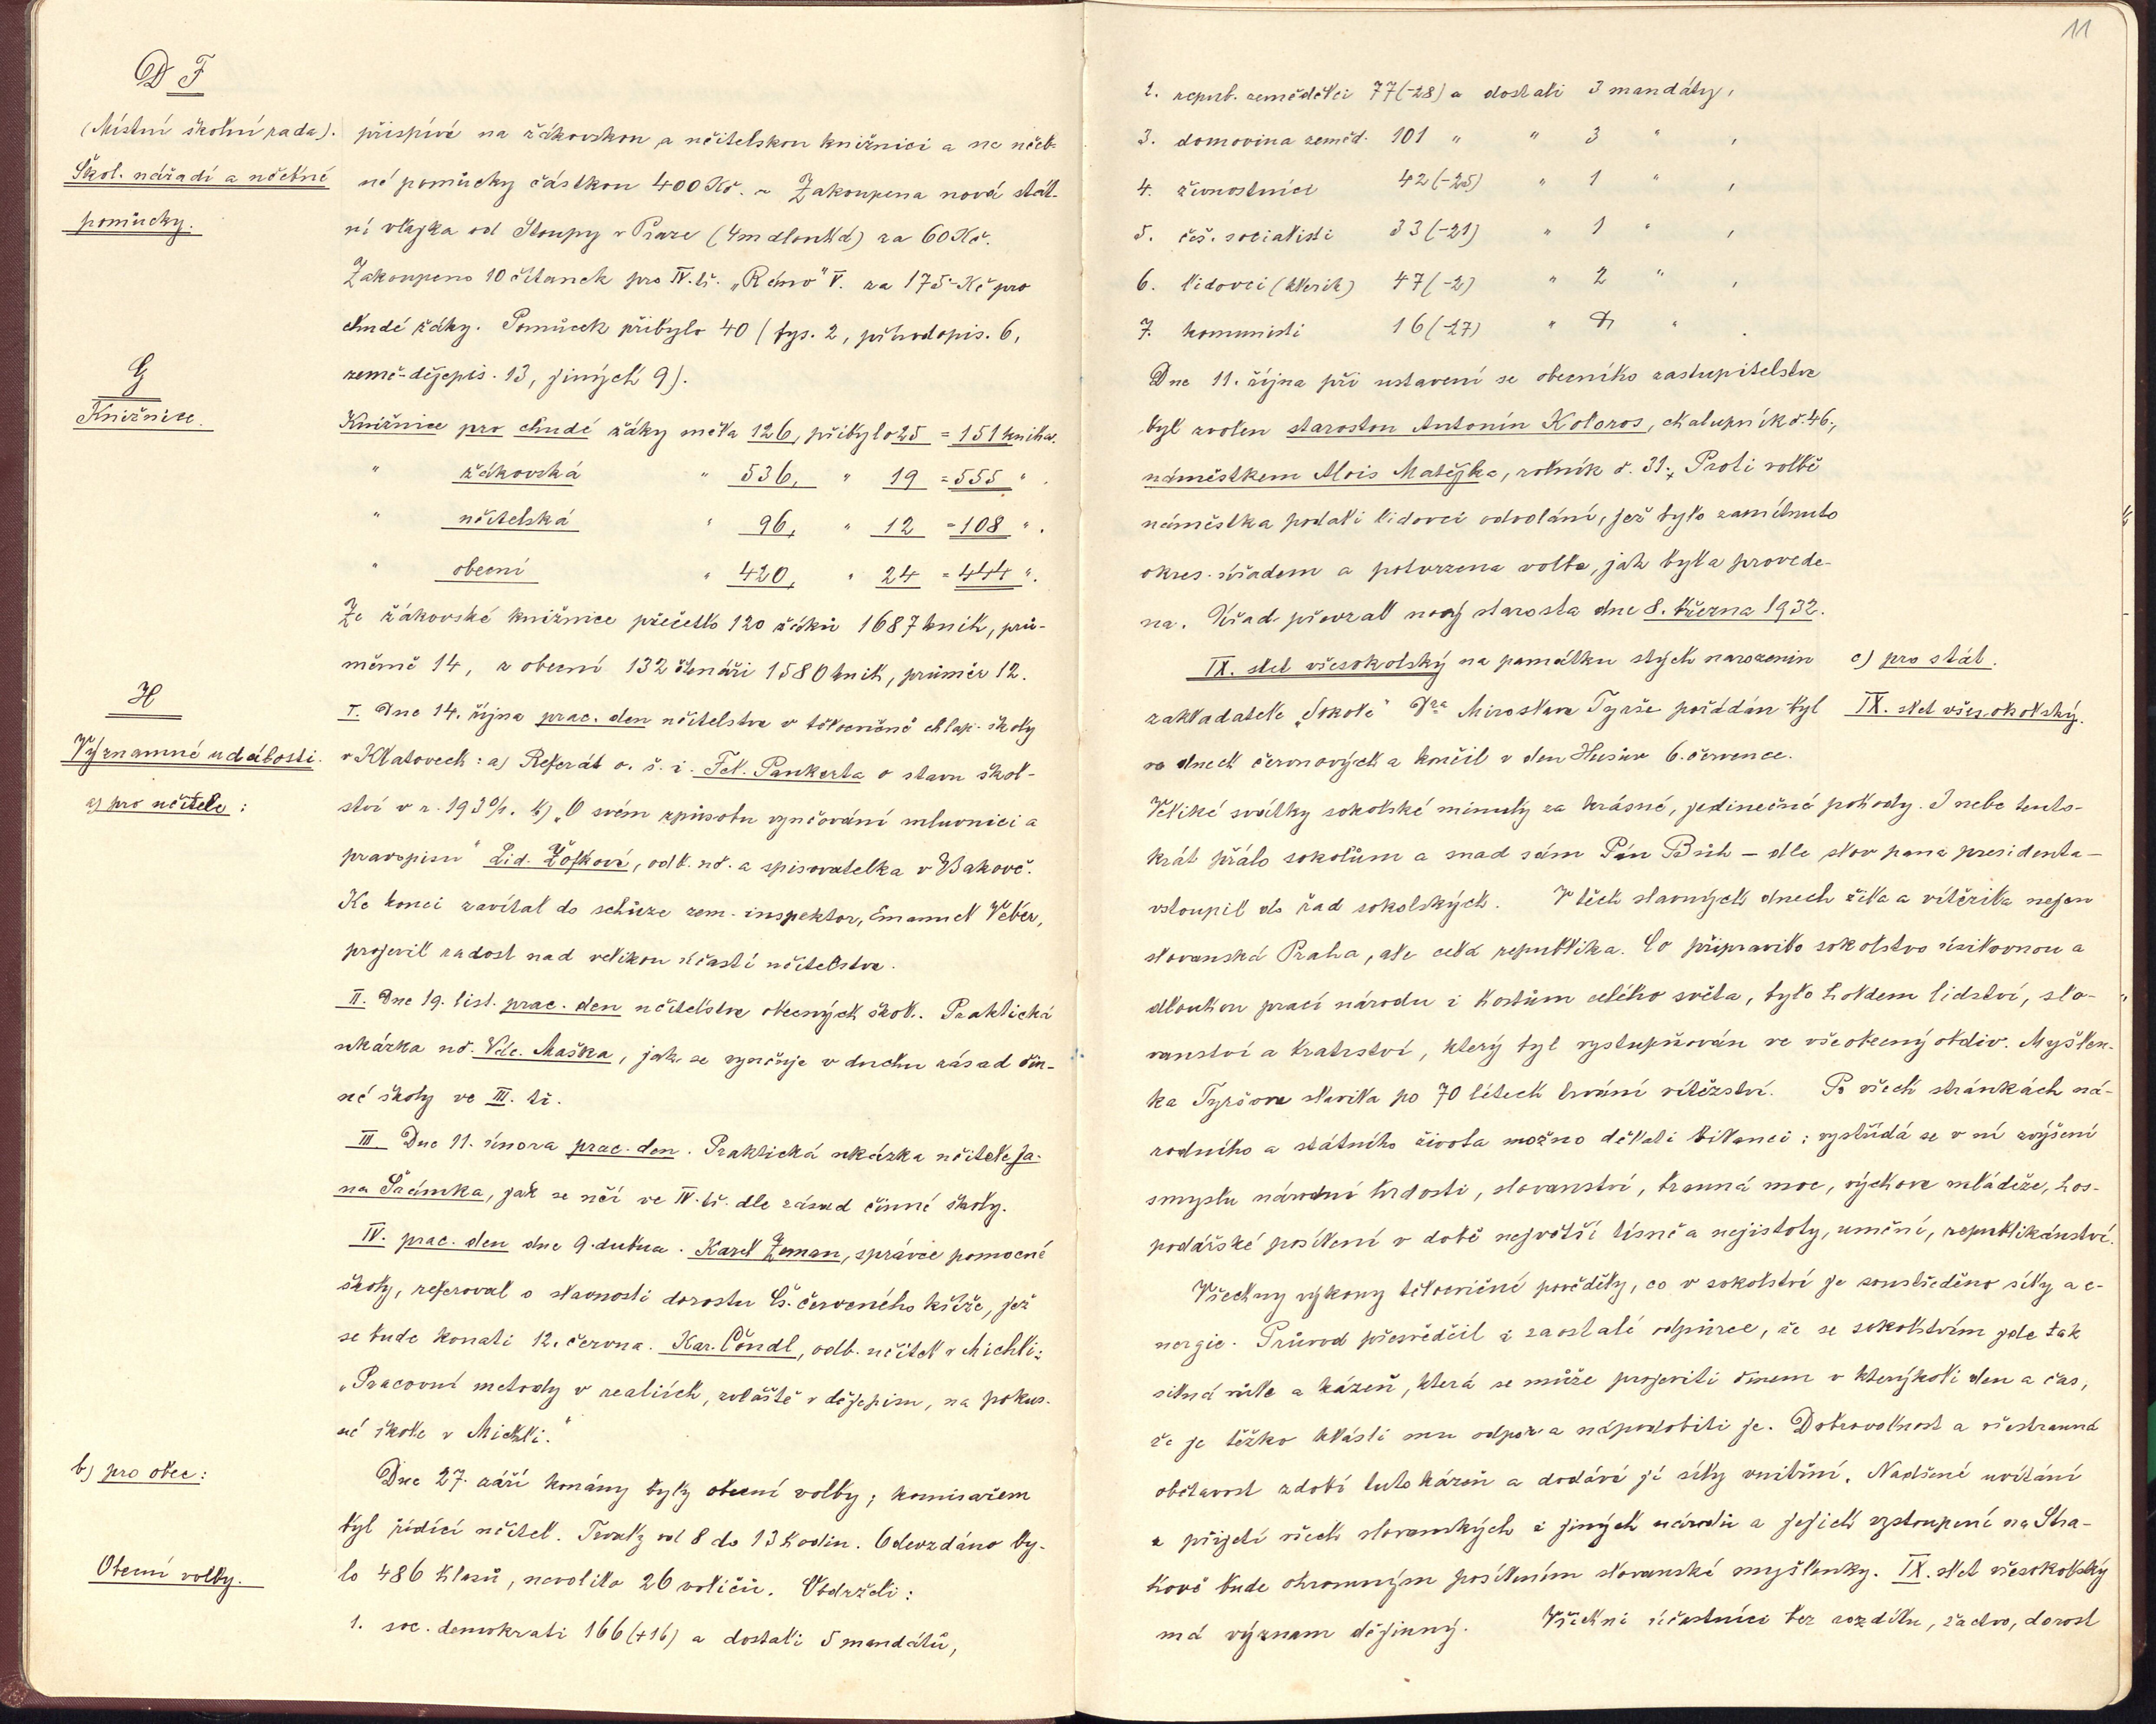 D F
(Místní školní rada).
Škol. nářadí a učebné
pomůcky.
přispívá na žákovskou a učitelskou knižnici a na učeb-
né pomůcky částkou 400 Kč. ~ Zakoupena nová stát-
ní vlajka od Stoupy v Praze (4m dlouhá) za 60 Kč.
Zakoupeno 10 čítanek pro IV. tř. „Rémo“ V. za 175 Kč pro
chudé žáky. Pomůcek přibylo 40 (fys. 2, přírodopis. 6,
země-dějepis. 13, jiných 9).
G
Knižnice.
Knižnice pro chudé žáky měla 126, přibylo 25 = 151 kniha.
" žákovská " 536, " 19 = 555 " .
" učitelská " 96, " 12 = 108 " .
" obecní " 420, " 24 = 444 " .
Ze žákovské knižnice přečetlo 120 žáků 1687 knih, prů-
měrně 14, z obecní 132 čtenáři 1580 knih, průměr 12.
H
Významné události.
a) pro učitele :
I. Dne 14. října prac. den učitelstva v tělocvičně chlap. školy
v Klatovech : a) Referát o. š. i. Fel. Pankerta o stavu škol-
ství v r. 1930/1. b) „O svém způsobu vyučování mluvnici a
pravopisu“ Lid. Žofková, odb. uč. a spisovatelka v Bakově.
Ke konci zavítal do schůze zem. inspektor, Emanuel Veber,
projevil radost nad velikou účastí učitelstva.
II. Dne 19. list. prac. den učitelstva obecných škol. Praktická
ukázka uč. Vác. Maška, jak se vyučuje v duchu zásad čin-
né školy ve III. tř.
III. Dne 11. února prac. den. Praktická ukázka učitele Ja-
na Šrámka, jak se učí ve IV. tř. dle zásad činné školy.
IV. prac. den dne 9. dubna. Karel Zeman, správce pomocné
školy, referoval o slavnosti dorostu Čs. červeného kříže, jež
se bude konati 12. června. Kar. Čondl, odb. učitel v Michli:
„Pracovní metody v realiích, zvláště v dějepisu, na pokus-
né škole v Michli.“
b) pro obec :
Obecní volby.
Dne 27. září konány byly obecní volby; komisařem
byl řídící učitel. Trvaly od 8 do 13 hodin. Odevzdáno by-
lo 486 hlasů, nevolilo 26 voličů. Obdrželi :
1. soc. demokrati 166 (+16) a dostali 5 mandátů,
11
2. repub. zemědělci 77 (-28) a dostali 3 mandáty,
3. domovina zeměd. 101 " " 3 " ,
4. živnostníci 42 (-25) " 1 " ,
5. čes. socialisti 33 (-21) " 1 " ,
6. lidovci (klerik) 47 (-2) " 2 " ,
7. komunisti 16 (-27) " " .
Dne 11. října při ustavení se obecního zastupitelstva
byl zvolen starostou Antonín Koloros, chalupník č. 46.,
náměstkem Alois Matějka, rolník č. 31., Proti volbě
náměstka podali lidovci odvolání, jež bylo zamítnuto
okres. úřadem a potvrzena volba, jak byla provede-
na. Úřad převzal nový starosta dne 8. března 1932.
IX. slet všesokolský na památku stých narozenin
zakladatele „Sokola“ Dra Miroslava Tyrše pořádán byl
ve dnech červnových a končil v den Husův 6. července.
c) pro stát.
IX. slet všesokolský.
Veliké svátky sokolské minuly za krásné, jedinečné pohody. I nebe tento-
krát přálo sokolům a snad sám Pán Bůh – dle slov pana presidenta –
vstoupil do řad sokolských. V těch slavných dnech žila a vítězila nejen
slovanská Praha, ale celá republika. Co připravilo sokolstvo úsilovnou a
dlouhou prací národu i hostům celého světa, bylo holdem lidství, slo-
vanství a bratrství, který byl vystupňován ve všeobecný obdiv. Myšlen-
ka Tyršova slavila po 70 létech trvání vítězství. Po všech stránkách ná-
rodního a státního života možno dělati bilanci : vystřídá se v ní zvýšení
smyslu národní hrdosti, slovanství, branná moc, výchova mládeže, hos-
podářské posílení v době největší tísně a nejistoty, umění, republikánství.
Všechny výkony tělocvičné pověděly, co v sokolství je soustředěno síly a e-
nergie. Průvod přesvědčil i zaostalé odpůrce, že se sokolstvím jde tak
silná vůle a kázeň, která se může projeviti činem v kterýkoli den a čas,
že je těžko klásti mu odpor a napodobiti je. Dobrovolnost a všestranná
obětavost zdobí tuto kázeň a dodává jí síly vnitřní. Nadšené uvítání
a přijetí všech slovanských i jiných národů a jejich vystoupení na Stra-
hově bude ohromným posílením slovanské myšlenky. IX. slet všesokolský
má význam dějinný. Všichni účastníci bez rozdílu, žactvo, dorost